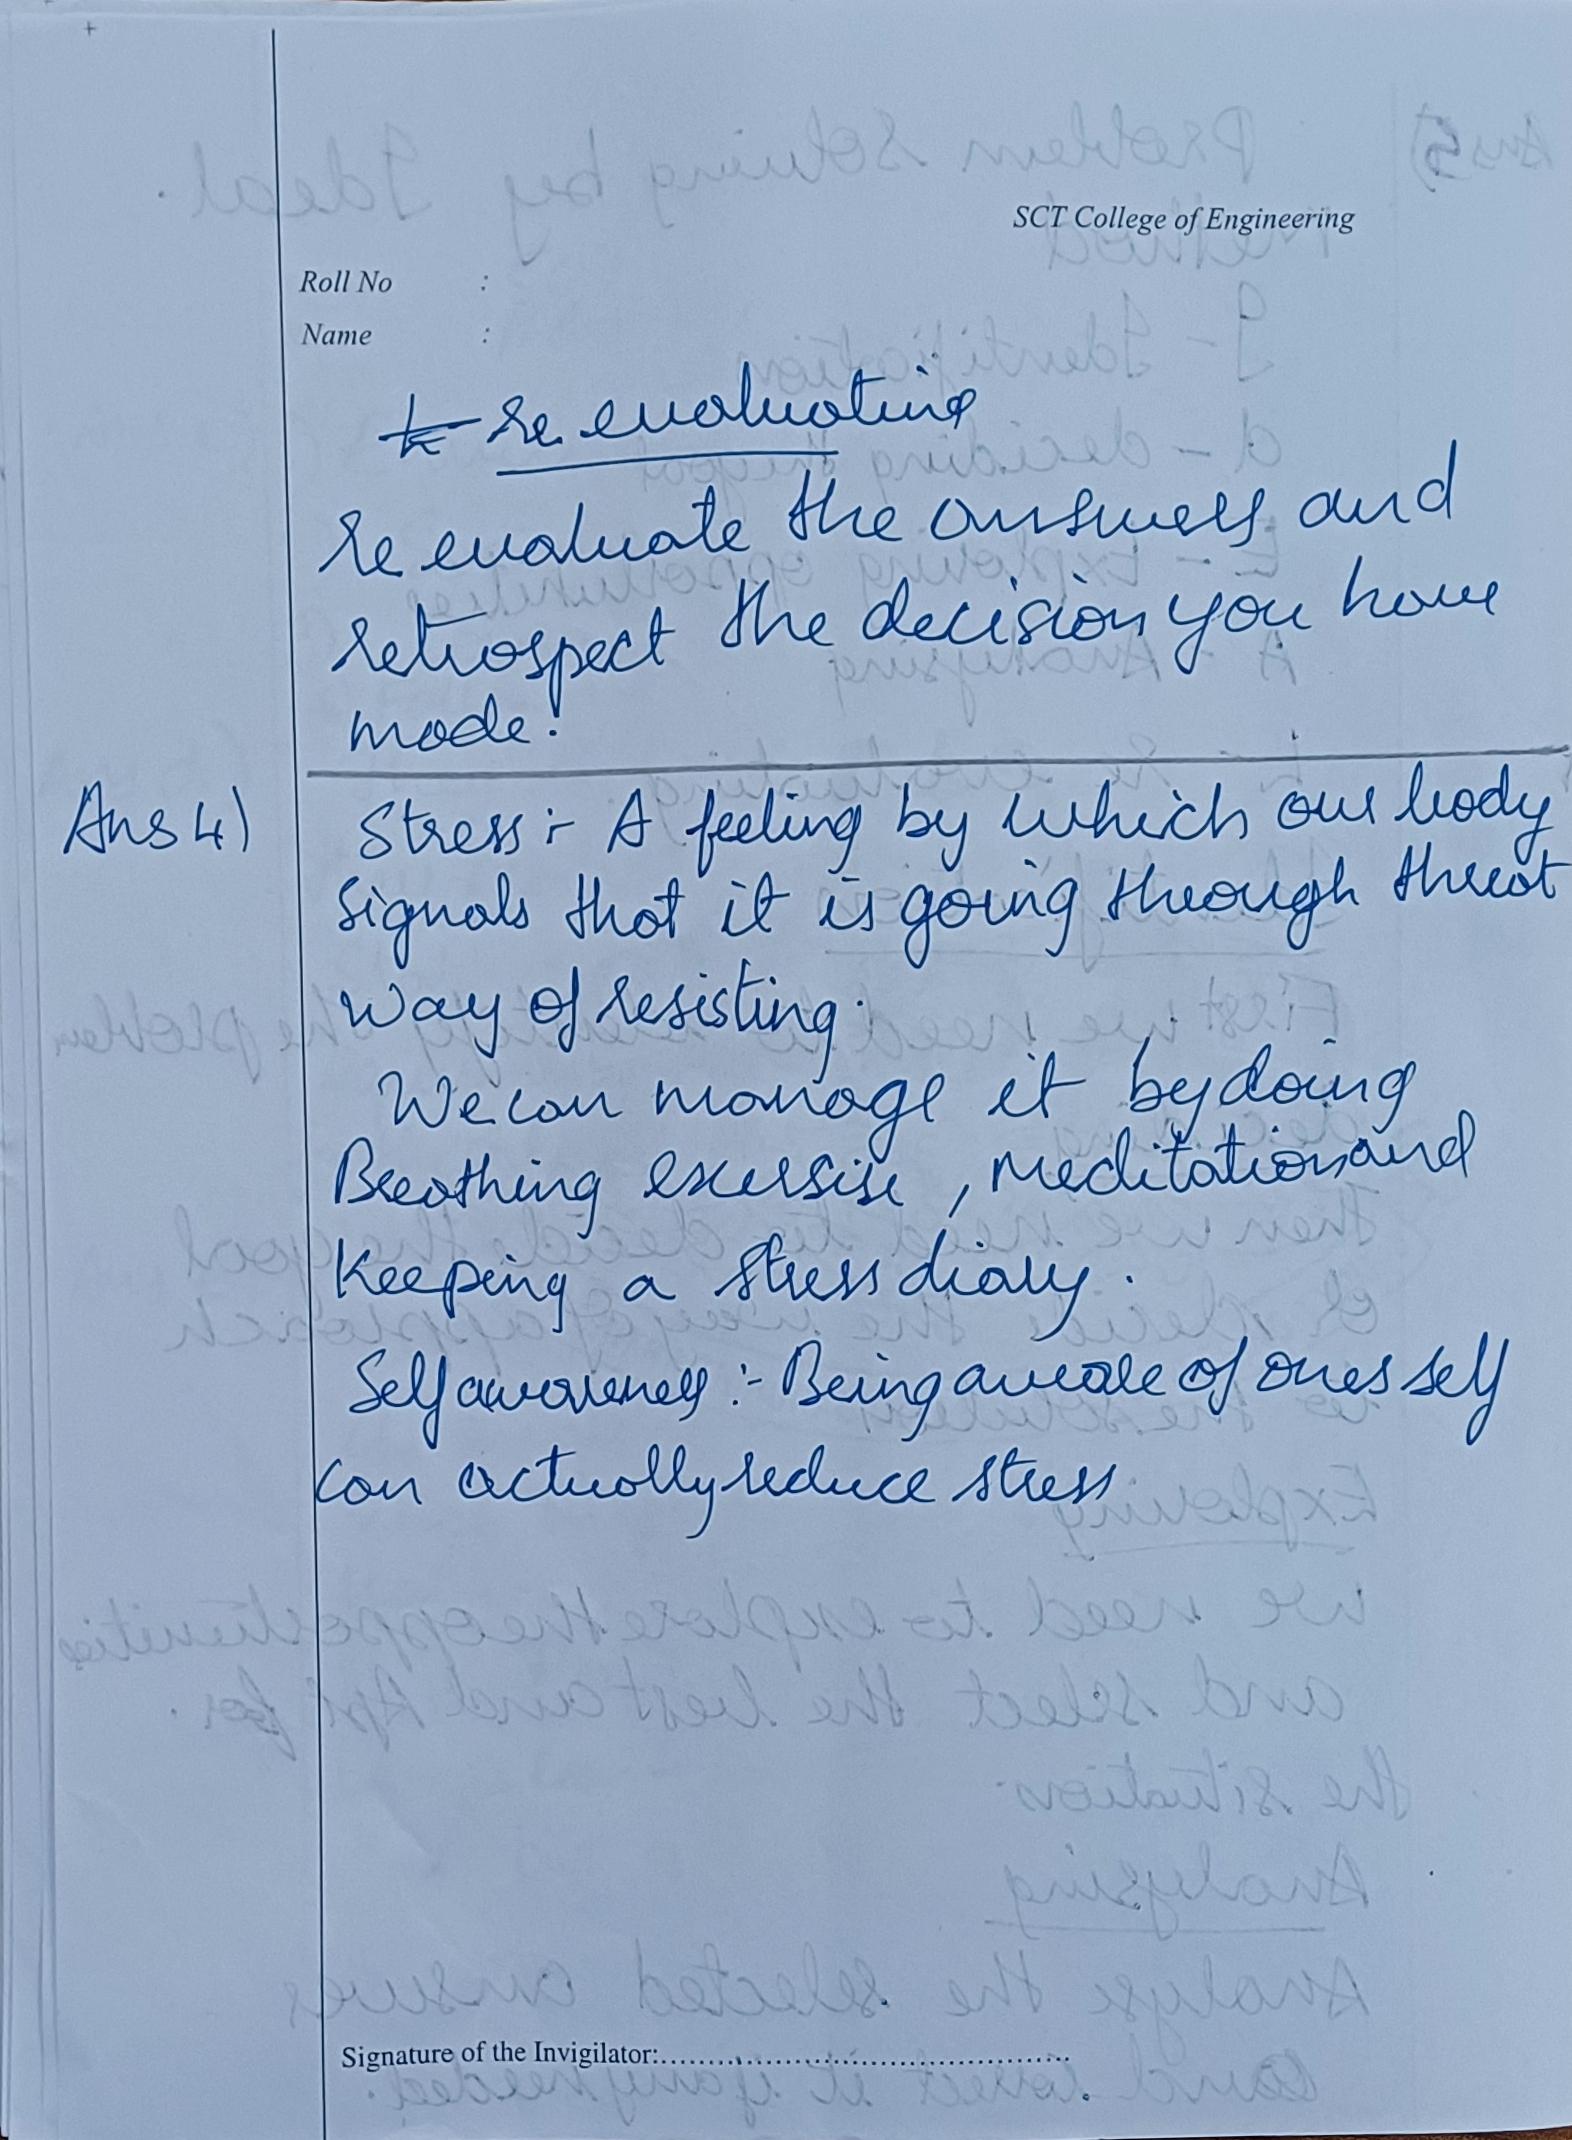 SCT College of Engineering
Roll No :
Name :
Re evaluating
Re evaluate the answers and
retrospect the decision you have
made.
Ans 4) Stress :- A feeling by which our body
signals that it is going through threat
way of resisting.
We can manage it by doing
Breathing exersise, meditation and
Keeping a stress diary.
Self awareness :- Being aware of ones self
can actually reduce stress
Signature of the Invigilator:..................................................